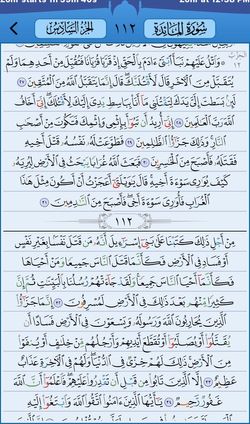 سُورَةُ المَائِدَةِ ١١٢ الجُزءُ السَّادِسُ
۞ وَٱتْلُ عَلَيْهِمْ نَبَأَ ٱبْنَىْ ءَادَمَ بِٱلْحَقِّ إِذْ قَرَّبَا قُرْبَانًا فَتُقُبِّلَ مِنْ أَحَدِهِمَا وَلَمْ
يُتَقَبَّلْ مِنَ ٱلْءَاخَرِ قَالَ لَأَقْتُلَنَّكَ قَالَ إِنَّمَا يَتَقَبَّلُ ٱللَّهُ مِنَ ٱلْمُتَّقِينَ ٢٧
لَئِنۢ بَسَطتَ إِلَىَّ يَدَكَ لِتَقْتُلَنِى مَآ أَنَا۠ بِبَاسِطٍ يَدِىَ إِلَيْكَ لِأَقْتُلَكَ إِنِّىٓ أَخَافُ
ٱللَّهَ رَبَّ ٱلْعَٰلَمِينَ ٢٨ إِنِّىٓ أُرِيدُ أَن تَبُوٓأَ بِإِثْمِى وَإِثْمِكَ فَتَكُونَ مِنْ أَصْحَٰبِ
ٱلنَّارِ وَذَٰلِكَ جَزَٰٓؤُا۟ ٱلظَّٰلِمِينَ ٢٩ فَطَوَّعَتْ لَهُۥ نَفْسُهُۥ قَتْلَ أَخِيهِ
فَقَتَلَهُۥ فَأَصْبَحَ مِنَ ٱلْخَٰسِرِينَ ٣٠ فَبَعَثَ ٱللَّهُ غُرَابًا يَبْحَثُ فِى ٱلْأَرْضِ لِيُرِيَهُۥ
كَيْفَ يُوَٰرِى سَوْءَةَ أَخِيهِ قَالَ يَٰوَيْلَتَىٰٓ أَعَجَزْتُ أَنْ أَكُونَ مِثْلَ هَٰذَا
ٱلْغُرَابِ فَأُوَٰرِىَ سَوْءَةَ أَخِى فَأَصْبَحَ مِنَ ٱلنَّٰدِمِينَ ٣١
١١٢
مِنْ أَجْلِ ذَٰلِكَ كَتَبْنَا عَلَىٰ بَنِىٓ إِسْرَٰٓءِيلَ أَنَّهُۥ مَن قَتَلَ نَفْسًۢا بِغَيْرِ نَفْسٍ
أَوْ فَسَادٍ فِى ٱلْأَرْضِ فَكَأَنَّمَا قَتَلَ ٱلنَّاسَ جَمِيعًا وَمَنْ أَحْيَاهَا
فَكَأَنَّمَآ أَحْيَا ٱلنَّاسَ جَمِيعًا وَلَقَدْ جَآءَتْهُمْ رُسُلُنَا بِٱلْبَيِّنَٰتِ ثُمَّ إِنَّ
كَثِيرًا مِّنْهُم بَعْدَ ذَٰلِكَ فِى ٱلْأَرْضِ لَمُسْرِفُونَ ٣٢ إِنَّمَا جَزَٰٓؤُا۟
ٱلَّذِينَ يُحَارِبُونَ ٱللَّهَ وَرَسُولَهُۥ وَيَسْعَوْنَ فِى ٱلْأَرْضِ فَسَادًا أَن
يُقَتَّلُوٓا۟ أَوْ يُصَلَّبُوٓا۟ أَوْ تُقَطَّعَ أَيْدِيهِمْ وَأَرْجُلُهُم مِّنْ خِلَٰفٍ أَوْ يُنفَوْا۟
مِنَ ٱلْأَرْضِ ذَٰلِكَ لَهُمْ خِزْىٌ فِى ٱلدُّنْيَا وَلَهُمْ فِى ٱلْءَاخِرَةِ عَذَابٌ
عَظِيمٌ ٣٣ إِلَّا ٱلَّذِينَ تَابُوا۟ مِن قَبْلِ أَن تَقْدِرُوا۟ عَلَيْهِمْ فَٱعْلَمُوٓا۟ أَنَّ ٱللَّهَ
غَفُورٌ رَّحِيمٌ ٣٤ يَٰٓأَيُّهَا ٱلَّذِينَ ءَامَنُوا۟ ٱتَّقُوا۟ ٱللَّهَ وَٱبْتَغُوٓا۟ إِلَيْهِ